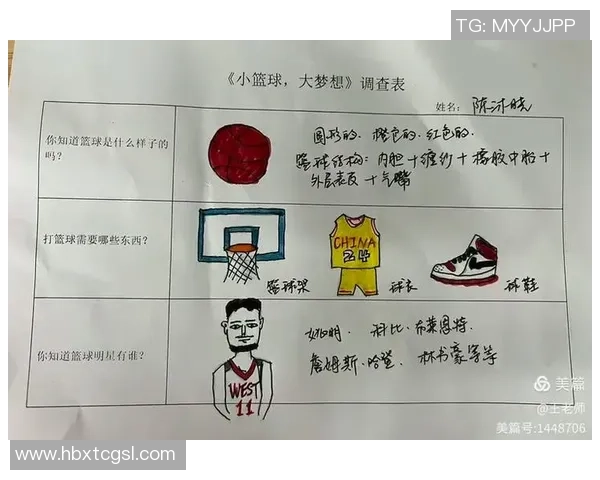 TG: MYYJJPP
《小篮球，大梦想》调查表
姓名：陈沐晓
你知道篮球是什么样子的
吗？
圆形的、橙色的、红色的、
篮球结构：内胆+缠纱+橡胶中胎+
外层表皮+气嘴
打篮球需要哪些东西？
CHINA
24
篮球架
球衣
球鞋
你知道篮球明星有谁？
WEST
11
姚明、科比·布莱恩特、
詹姆斯·哈登、林书豪等等
美篇
@王老师
美篇号:1448706
www.hbxtcgsl.com